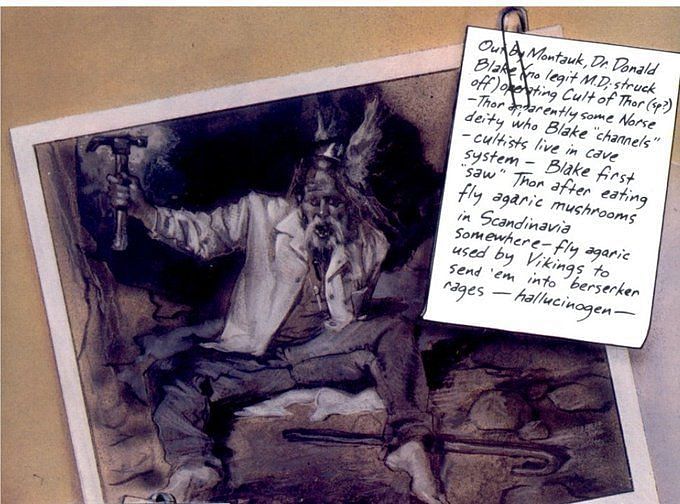 Out by Montauk, Dr. Donald
Blake (no legit M.D.; struck
off) operating Cult of Thor (sp?)
- Thor apparently some Norse
deity who Blake "channels"
- cultists live in cave
system - Blake first
"saw" Thor after eating
fly agaric mushrooms
in Scandinavia
somewhere - fly agaric
used by Vikings to
send 'em into berserker
rages - hallucinogen -